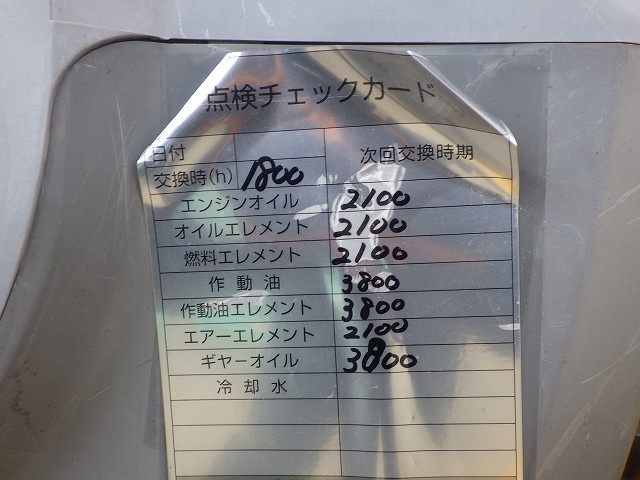 点検チェックカード
日付
次回交換時期
交換時(h) 1800
エンジンオイル 2100
オイルエレメント 2100
燃料エレメント 2100
作動油 3800
作動油エレメント 3800
エアーエレメント 2100
ギヤーオイル 3800
冷却水